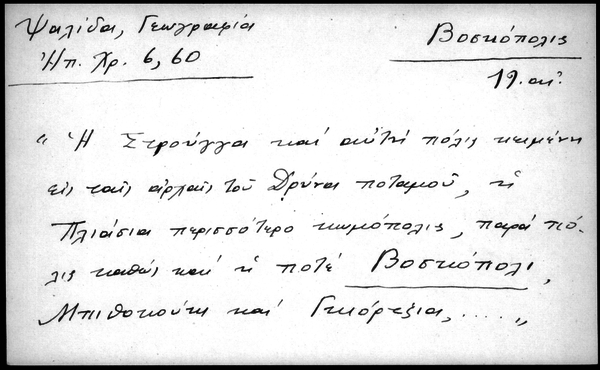 Ψαλίδα, Γεωγραφία
Ἠπ. Χρ. 6, 60
Βοσκόπολις
19. αἰ.
“ Ἡ Στρούγγα καὶ αὐτὴ πόλις κειμένη
εἰς ταῖς ἀρχαῖς τοῦ Δρύνα ποταμοῦ, ἡ
Πλιάσια περισσότερο κωμόπολις, παρὰ πό-
λις καθὼς καὶ ἡ ποτὲ Βοσκόπολι,
Μπιθοκούκη καὶ Γκιόρτζια, .... „